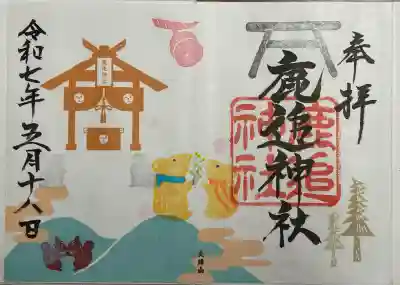 奉拝
鹿追神社
鹿追神社
令和七年五月十八日